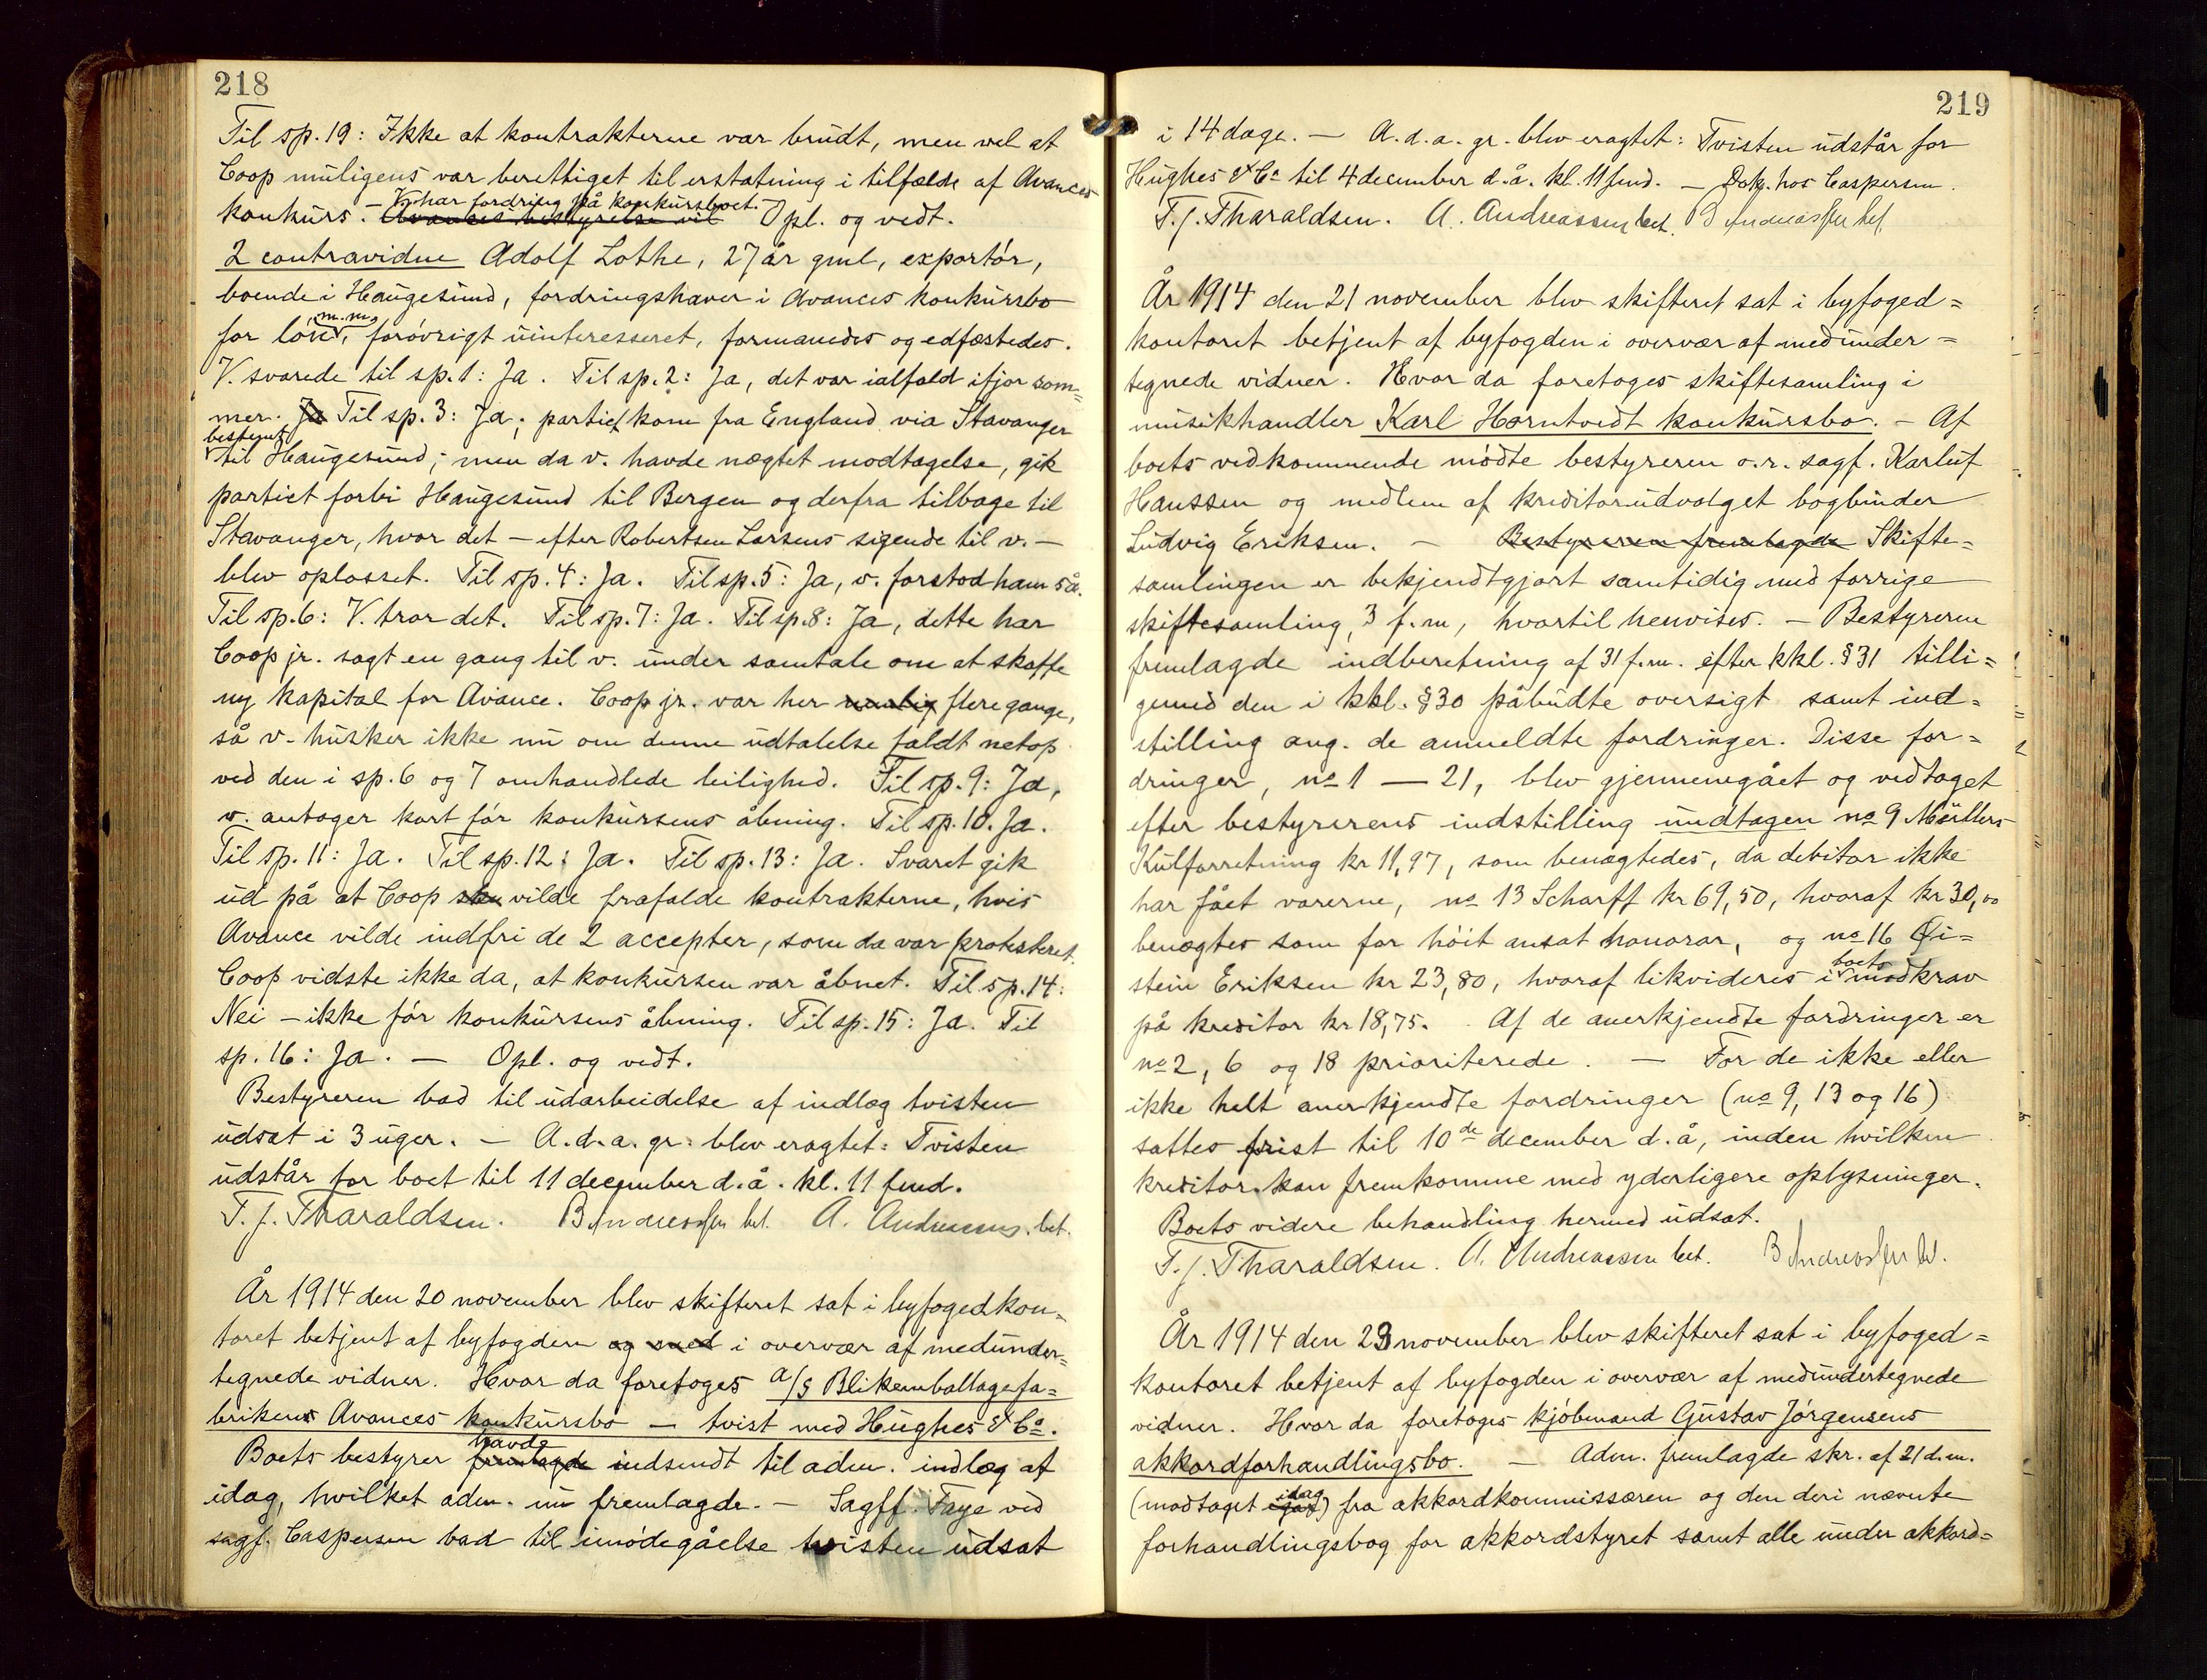 218
Til sp. 19: Ikke at kontrakterne var brudt, men vel at
Coop muligens var berettiget til erstatning i tilfælde af Avances
konkurs. – V. har fordring på konkursboet. – Avances bestyrelse vil Opl. og vedt.
2 contravidne Adolf Lothe, 27 år gml, exportør,
boende i Haugesund, fordringshaver i Avances konkursbo
for løn m.m., forøvrigt uinteresseret, formanedes og edfæstedes.
V. svarede til sp. 1: Ja. Til sp. 2: Ja, det var ialfald ifjor som=
mer. Ja Til sp. 3: Ja; partiet kom fra England via Stavanger
bestemt til Haugesund; men da v. havde nægtet modtagelse, gik
partiet forbi Haugesund til Bergen og derfra tilbage til
Stavanger, hvor det – efter Robertsen Larsens sigende til v. –
blev oplosset. Til sp. 4: Ja. Til sp. 5: Ja, v. forstod ham så.
Til sp. 6: V. tror det. Til sp. 7: Ja. Til sp. 8: Ja, dette har
Coop jr. sagt en gang til v. under samtale om at skaffe
ny kapital for Avance. Coop jr. var her nemlig flere gange,
så v. husker ikke nu om denne udtalelse faldt netop
ved den i sp. 6 og 7 omhandlede leilighed. Til sp. 9: Ja,
v. antager kort før konkursens åbning. Til sp. 10. Ja.
Til sp. 11: Ja. Til sp. 12: Ja. Til sp. 13: Ja. Svaret gik
ud på at Coop sku vilde frafalde kontrakterne, hvis
Avance vilde indfri de 2 accepter, som da var protesteret.
Coop vidste ikke da, at konkursen var åbnet. Til sp. 14:
Nei – ikke før konkursens åbning. Til sp. 15: Ja. Til
sp. 16: Ja. – Opl. og vedt.
Bestyreren bad til udarbeidelse af indlæg tvisten
udsat i 3 uger. – A. d. a. gr. blev eragtet: Tvisten
udstår for boet til 11 december d. å. kl. 11 fmd.
T. J. Tharaldsen. B Andreassen bet. A. Andreassen. bet.
År 1914 den 20 november blev skifteret sat i byfogedkon=
toret betjent af byfogden og med i overvær af medunder=
tegnede vidner. Hvor da foretoges A/S Blikemballagefa=
brikens Avances konkursbo – tvist med Hughes & Co.
Boets bestyrer fremlagde havde indsendt til adm. indlæg af
idag, hvilket adm. nu fremlagde. – Sagff. Faye ved
sagf. Caspersen bad til imødegåelse tvisten udsat
219
i 14 dage. – A. d. a. gr. blev eragtet: Tvisten udstår for
Hughes & Co til 4 december d. å. kl. 11 fmd. – Dok. hos Caspersen.
T. J. Tharaldsen. A. Andreassen bet. B Andreassen bet.
År 1914 den 21 november blev skifteret sat i byfoged=
kontoret betjent af byfogden i overvær af medunder=
tegnede vidner. Hvor da foretoges skiftesamling i
musikhandler Karl Horntvedt konkursbo. – Af
boets vedkommende mødte bestyreren o.r. sagf. Karluf
Hanssen og medlem af kreditorudvalget bogbinder
Ludvig Eriksen. – Bestyreren fremlagde Skifte=
samlingen er bekjendtgjort samtidig med forrige
skiftesamling, 3 f. m, hvortil henvises. – Bestyreren
fremlagde indberetning af 31 f. m. efter kkl. § 31 tilli=
gemed den i kkl. § 30 påbudte oversigt samt ind=
stilling ang. de anmeldte fordringer. Disse for=
dringer, no 1 – 21, blev gjennemgået og vedtaget
efter bestyrerens indstilling undtagen no 9 Müllers
Kulforretning kr 11,97, som benægtedes, da debitor ikke
har fået varerne, no 13 Scharff kr 69,50, hvoraf kr 30,00
benægtes som for høit ansat honorar, og no 16 Øi=
stein Eriksen kr 23,80, hvoraf likvideres i boets modkrav
på kreditor kr 18,75. Af de anerkjendte fordringer er
no 2, 6 og 18 prioriterede. – For de ikke eller
ikke helt anerkjendte fordringer (no 9, 13 og 16)
sattes frist til 10de december d. å, inden hvilken
kreditor kan fremkomme med yderligere oplysninger.
Boets videre behandling hermed udsat.
T. J. Tharaldsen. A. Andreassen bet. B Andreassen bet.
År 1914 den 23 november blev skifteret sat i byfoged=
kontoret betjent af byfogden i overvær af medundertegnede
vidner. Hvor da foretoges kjøbmand Gustav Jørgensens
akkordforhandlingsbo. – Adm. fremlagde skr. af 21 d. m.
(modtaget igår idag) fra akkordkommissæren og den deri nævnte
forhandlingsbog for akkordstyret samt alle under akkord=